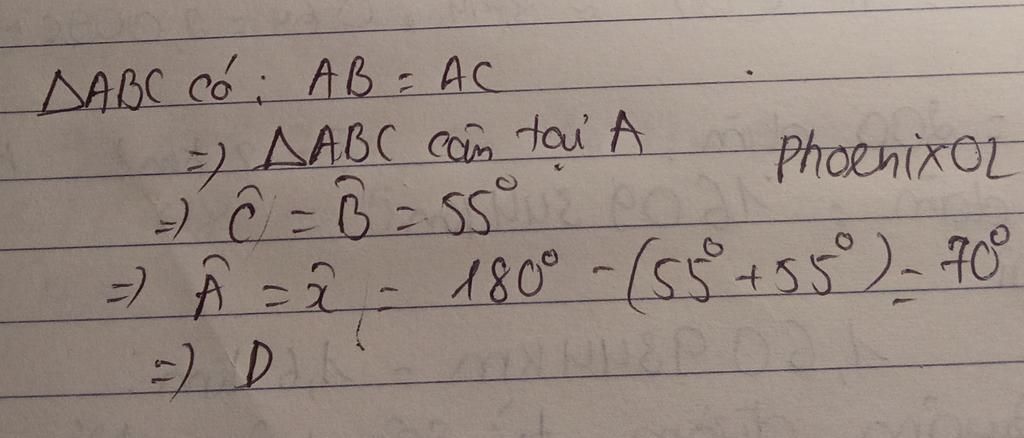 ΔABC có: AB = AC
=) ΔABC cân tại A
PhoenixOL
=) Ĉ = B̂ = 55°
=) Â = x̂ = 180° - (55° + 55°) = 70°
=) D